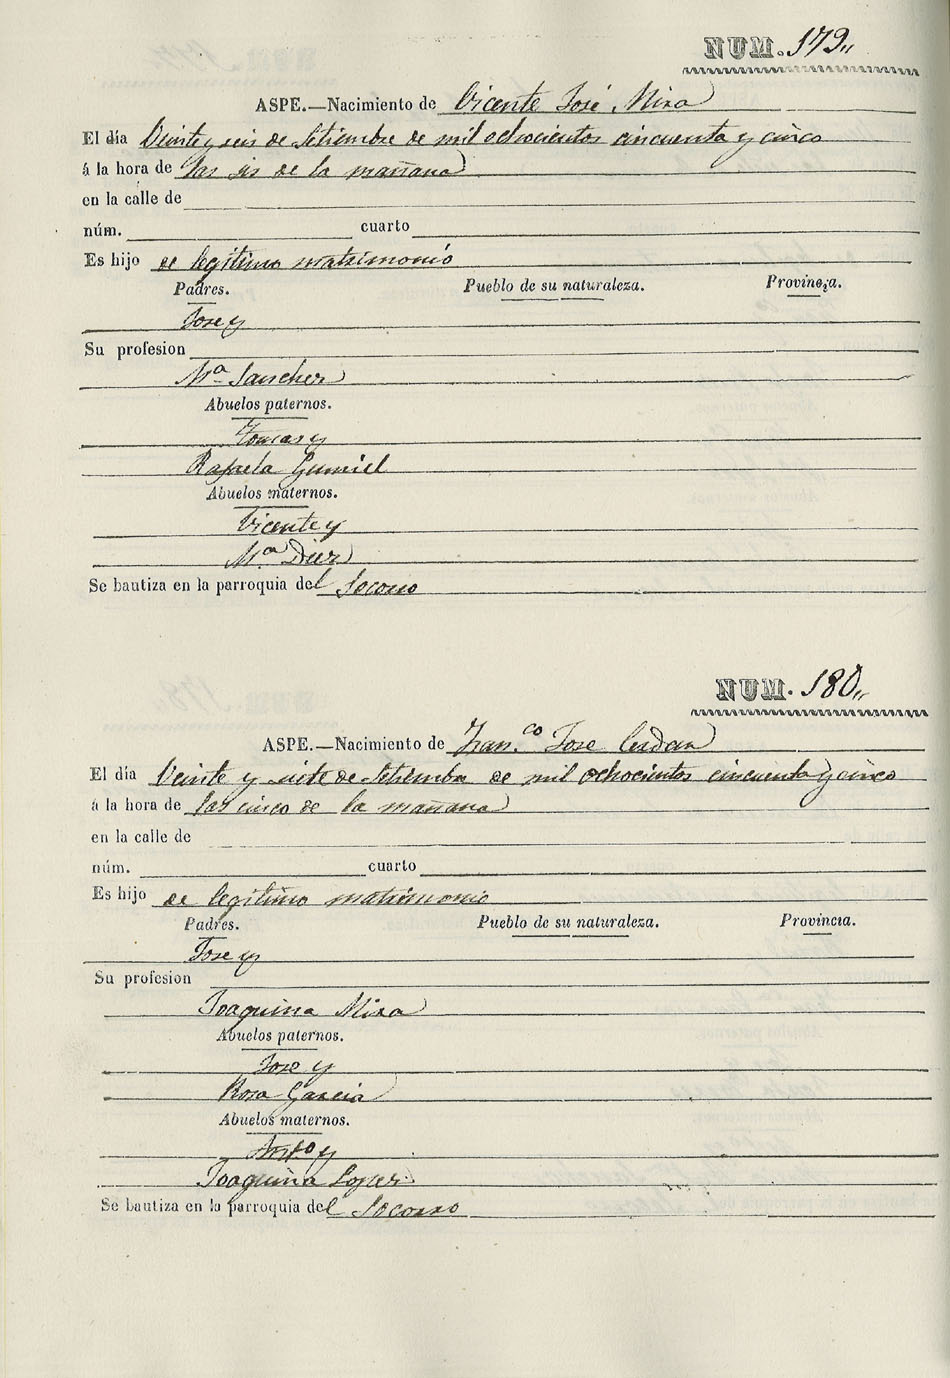 NUM. 179,,
ASPE.—Nacimiento de Vicente José Mira
El día Veinte y seis de Setiembre de mil ochocientos cincuenta y cinco
á la hora de las sis de la mañana
en la calle de
núm. cuarto
Es hijo de legitimo matrimonio
Padres. Pueblo de su naturaleza. Provincia.
Jose y
Su profesion
Mª Sanchez
Abuelos paternos.
Tomas y
Rafaela Gumiel
Abuelos maternos.
Vicente y
Mª Diez
Se bautiza en la parroquia del Socorro
NUM. 180,,
ASPE.—Nacimiento de Fran.co Jose Cerdan
El día Veinte y siete de Setiembre de mil ochocientos cincuenta y cinco
á la hora de las cinco de la mañana
en la calle de
núm. cuarto
Es hijo de legitimo matrimonio
Padres. Pueblo de su naturaleza. Provincia.
Jose y
Su profesion
Joaquina Mira
Abuelos paternos.
Jose y
Rosa Garcia
Abuelos maternos.
Anto y
Joaquina Lopez
Se bautiza en la parroquia del Socorro